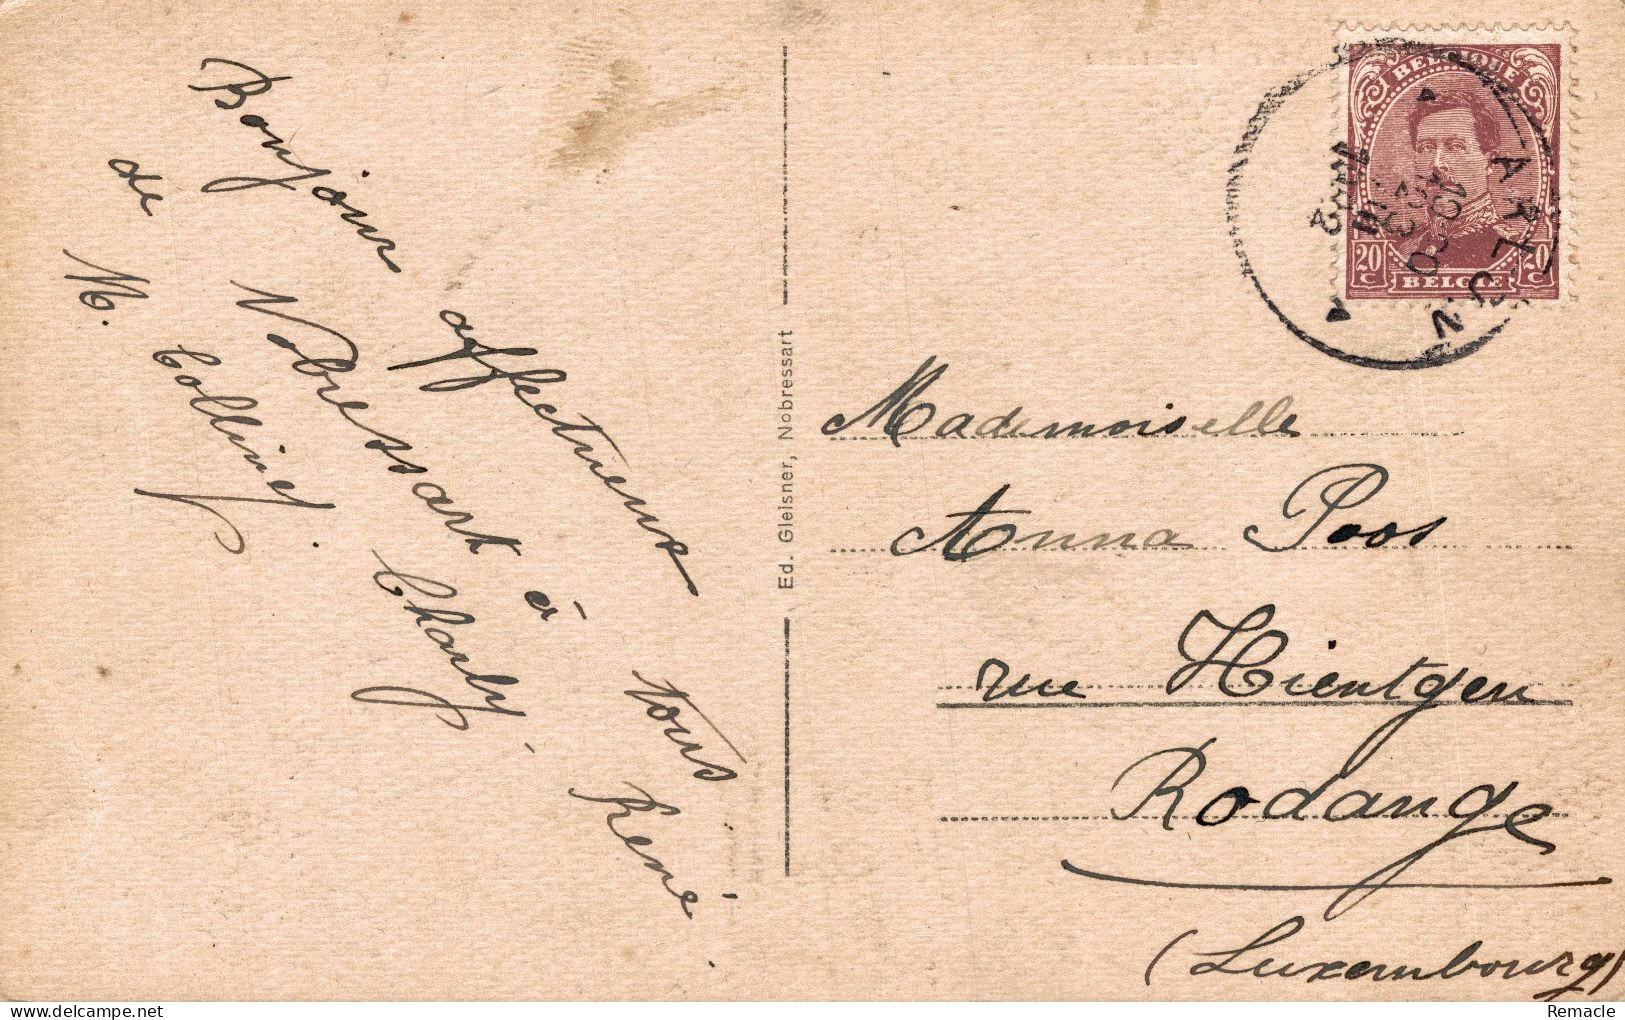 Bonjour affectueux
de Nobressart à tous
M. Collinet. Charly. René.
Ed. Gleisner, Nobressart
BELGIQUE
20 C 20 C
BELGIË
ARLON
Mademoiselle
Anna Poos
rue Hientgen
Rodange
(Luxembourg)
Remacle